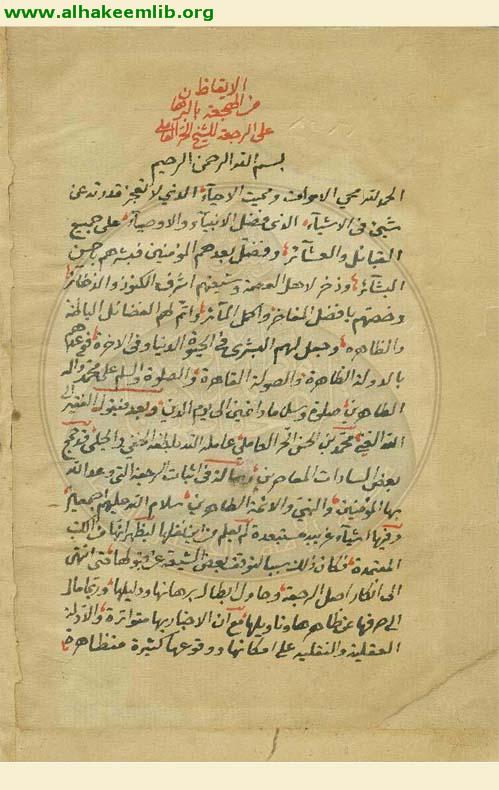 www.alhakeemlib.org
الايقاظ من
الهجعة بالبرهان
على الرجعة للشيخ الحر العاملي
بسم الله الرحمن الرحيم
الحمد لله محي الاموات ومميت الاحياء الذي لا تعجز قدرته عن
شئ في الاشياء الذي فضل الانبياء والاوصياء على جميع
القبائل والعشائر وفضل بعدهم المؤمنين فبشرهم باحسن
البشائر وذخر لاهل العصمة وشيعتهم اشرف الكنوز والذخائر
وخصهم بافضل المفاخر واكمل المآثر واتم لهم الفضائل الباطنة
والظاهرة وجعل لهم البشرى في الحيوة الدنيا وفي الاخرة فوعدهم
بالدولة الظاهرة والصولة القاهرة والصلوة والسلم على محمد واله
الطاهرين صلوة وسلاما دائمين الى يوم الدين وبعد فيقول الفقير الى
الله الغني محمد بن الحسن الحر العاملي عامله الله بلطفه الخفي والجلي قد جمع
بعض السادات المعاصرين رسالة في اثبات الرجعة التي وعد الله
بها المؤمنين والنبي والائمة الطاهرين سلام الله عليهم اجمعين
وفيها اشياء غريبة مستبعدة لم يعلم من اين نقلها ليظهر انها من الكتب
المعتمدة فكان ذلك سببا لتوقف بعض الشيعة عن قبولها حتى انتهى
الى انكار اصل الرجعة وحاول ابطال برهانها ودليلها وربما مال
الى صرفها عن ظاهرها وتاويلها مع ان الاخبار بها متواترة والادلة
العقلية والنقلية على امكانها ووقوعها كثيرة متظاهرة